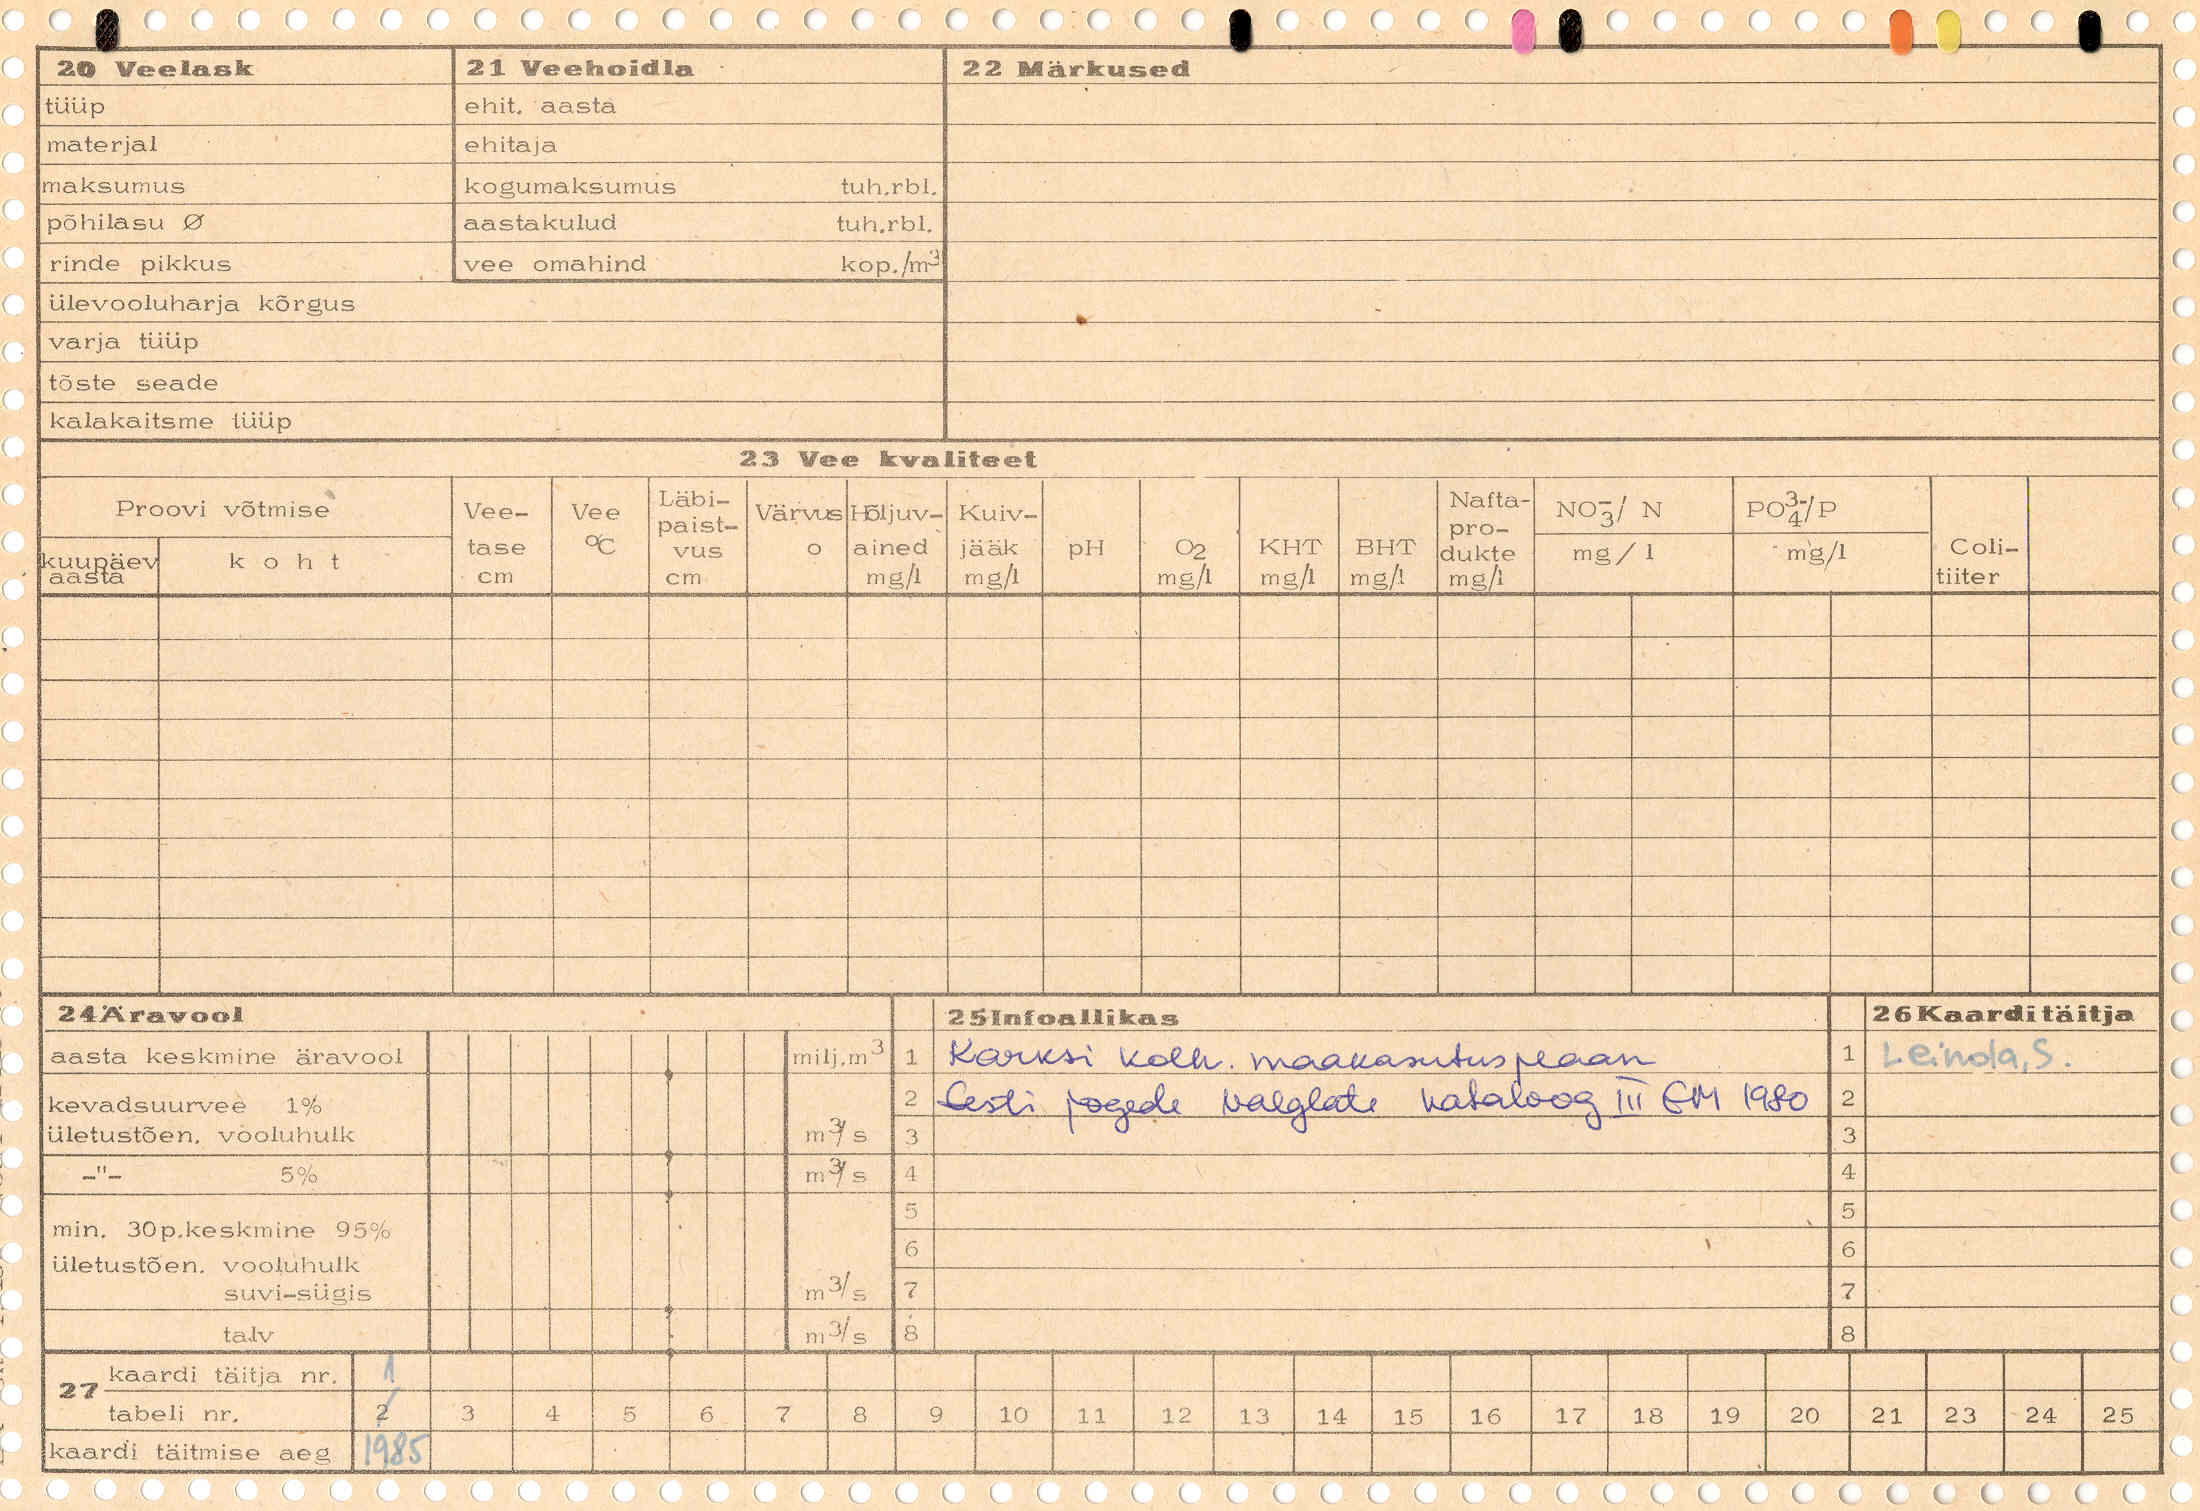 20 Veelask
tüüp
materjal
maksumus
põhilasu Ø
rinde pikkus
ülevooluharja kõrgus
varja tüüp
tõste seade
kalakaitsme tüüp
21 Veehoidla
ehit. aasta
ehitaja
kogumaksumus tuh.rbl.
aastakulud tuh.rbl.
vee omahind kop./m³
22 Märkused
23 Vee kvaliteet
Proovi võtmise
kuupäev aasta
koht
Vee-tase cm
Vee °C
Läbi-paist-vus cm
Värvus o
Hõljuv-ained mg/l
Kuiv-jääk mg/l
pH
O2 mg/l
KHT mg/l
BHT mg/l
Nafta-pro-dukte mg/l
NO3-/N mg/l
PO4 3-/P mg/l
Coli-tiiter
24 Äravool
aasta keskmine äravool milj.m³
kevadsuurvee 1%
ületustõen. vooluhulk m³/s
-"- 5% m³/s
min. 30p.keskmine 95%
ületustõen. vooluhulk
suvi-sügis m³/s
talv m³/s
25 Infoallikas
1 Karksi kolh. maakasutusplaan
2 Eesti jõgede valglate kataloog III EM 1980
3
4
5
6
7
8
26 Kaarditäitja
1 Leinola, S.
2
3
4
5
6
7
8
27 kaardi täitja nr. 1
tabeli nr. 2 3 4 5 6 7 8 9 10 11 12 13 14 15 16 17 18 19 20 21 23 24 25
kaardi täitmise aeg 1985